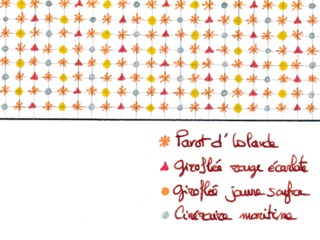 Pavot d'Islande
Giroflée rouge écarlate
Giroflée jaune soufre
Cinéraire maritime